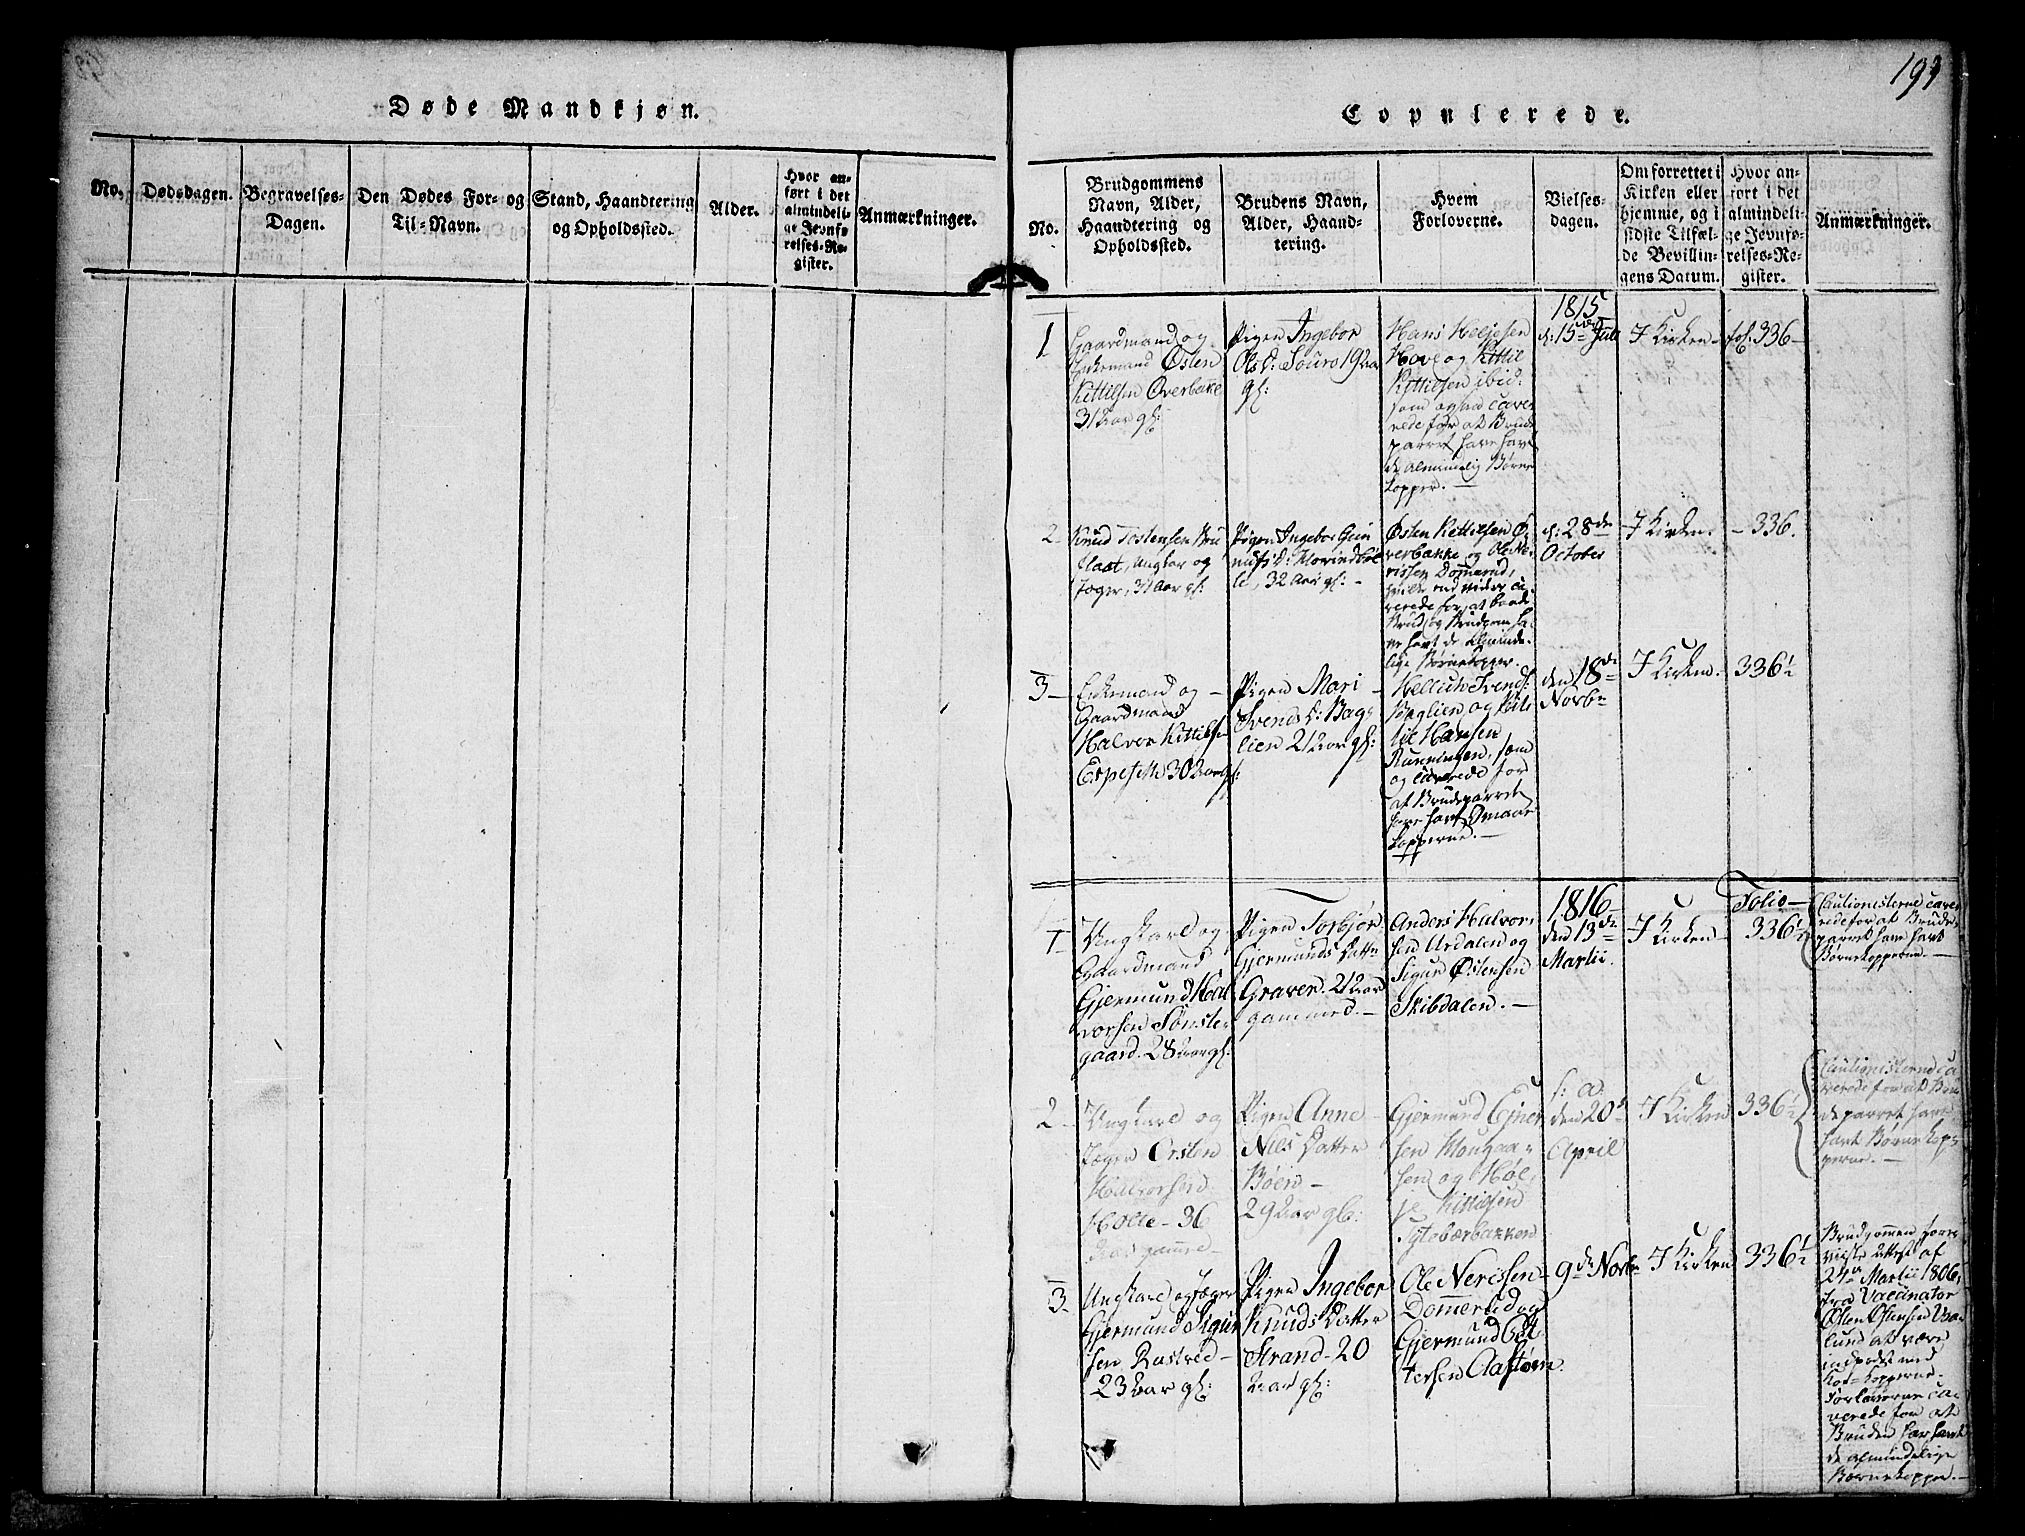 Døde Mandkjøn.
No.
Dødsdagen.
Begravelses-
Dagen.
Den Dødes For- og
Til-Navn.
Stand, Haandtering
og Opholdssted.
Alder.
Hvor an-
ført i det
almindeli-
ge Jevnfø-
relses-Re-
gister.
Anmærkninger.
193
Copulerede.
No.
Brudgommens
Navn, Alder,
Haandtering og
Opholdssted.
Brudens Navn,
Alder, Haand-
tering.
Hvem
Forloverne.
Vielses-
dagen.
Om forrettet i
Kirken eller
hjemme, og i
sidste Tilfæl-
de Bevillin-
gens Datum.
Hvor an-
ført i det
almindeli-
ge Jevnfø-
relses-Re-
gister.
Anmærkninger.
1
Gaardmand og
Enkemand Østen
Kittilsen Overbakke
31 Aar gl:
Pigen Ingebor
Ols D: Souro 19 Aar
gl:
Hans Heljesen
Hove og Kittil
Kittilsen ibid:
som ogsaa cave-
rede for at Brude
parret have havt
de almindelig Børne
kopper. —
1815
d: 15de Juli
I Kirken —
fol. 336 —
2
Knud Tostensen
Ungkar og
Jæger, 31 Aar gl:
Pigen Ingebor Gun
nufs D:
32 Aar gl: —
Østen Kittilsen Ø
verbakke og Ole Ne-
rissen Dommerud,
ca-
verede for, at baade
Brud og Brudgom ha-
ve havt de alminde-
lige Børnekopper.
d: 28de
October
I Kirken.
— 336.
3 —
Enkemand og —
Gaardmand
Halvor Kittilsen
Espeseth 30 Aar gl:
Pigen Mari —
Svends D: Bag-
lien 21 Aar gl:
Svends:
Baglien og Kit-
til Hansen
Runningen, som
og caverede for
at Brudeparret
have havt Smaae
kopperne. —
den 18de
Novbr
I Kirken.
336½
1
Ungkarl og
Gaardmand
Gjermund Hal
vorsen Sønste-
gaard. 28 Aar gl:
Pigen Torbjør
Gjermunds Datter
Graver. 21 Aar
gammel. —
Anders Halvor-
sen Urdalen og
Sigur Østensen
Skibdalen. —
1816
den 13de
Martii.
I Kirken —
Folio —
336½
Cautionisterne cave
rede for at Brude-
parret have havt
Børnekopperne. —
2 —
Ungkarl og
Jæger Østen
Halvorsen
Holte — 36
Aar gammel —
Pigen Anne —
Niels Datter
Bøen —
29 Aar gl:
Gjermund Ejner
sen Mongaa-
sen og Høl-
je Kittilsen
Tytebærbakken
s: a
den 20de
April
I Kirken
336½
Cautionisterne ca-
verede for at Bru
deparret have
havt Børnekop-
perne. —
3 —
Ungkarl og Jæger
Gjermund Sigur
sen Rustved —
23 Aar gl:
Pigen Ingebor
Knuds Datter
Strand — 20
Aar gl:
Ole Nerissen
Dommerud og
Gjermund Get
tersen
9de Novbr
I Kirken
336½
Brudgommen fore-
viiste Attest af
24de Martii 1806,
fra Vaccinator
Østen Østensen
at være
indpodet med
Koe-kopperne.
Forloverne ca-
verede for at
Bruden har havt
de almindelige
Børnekopper. —